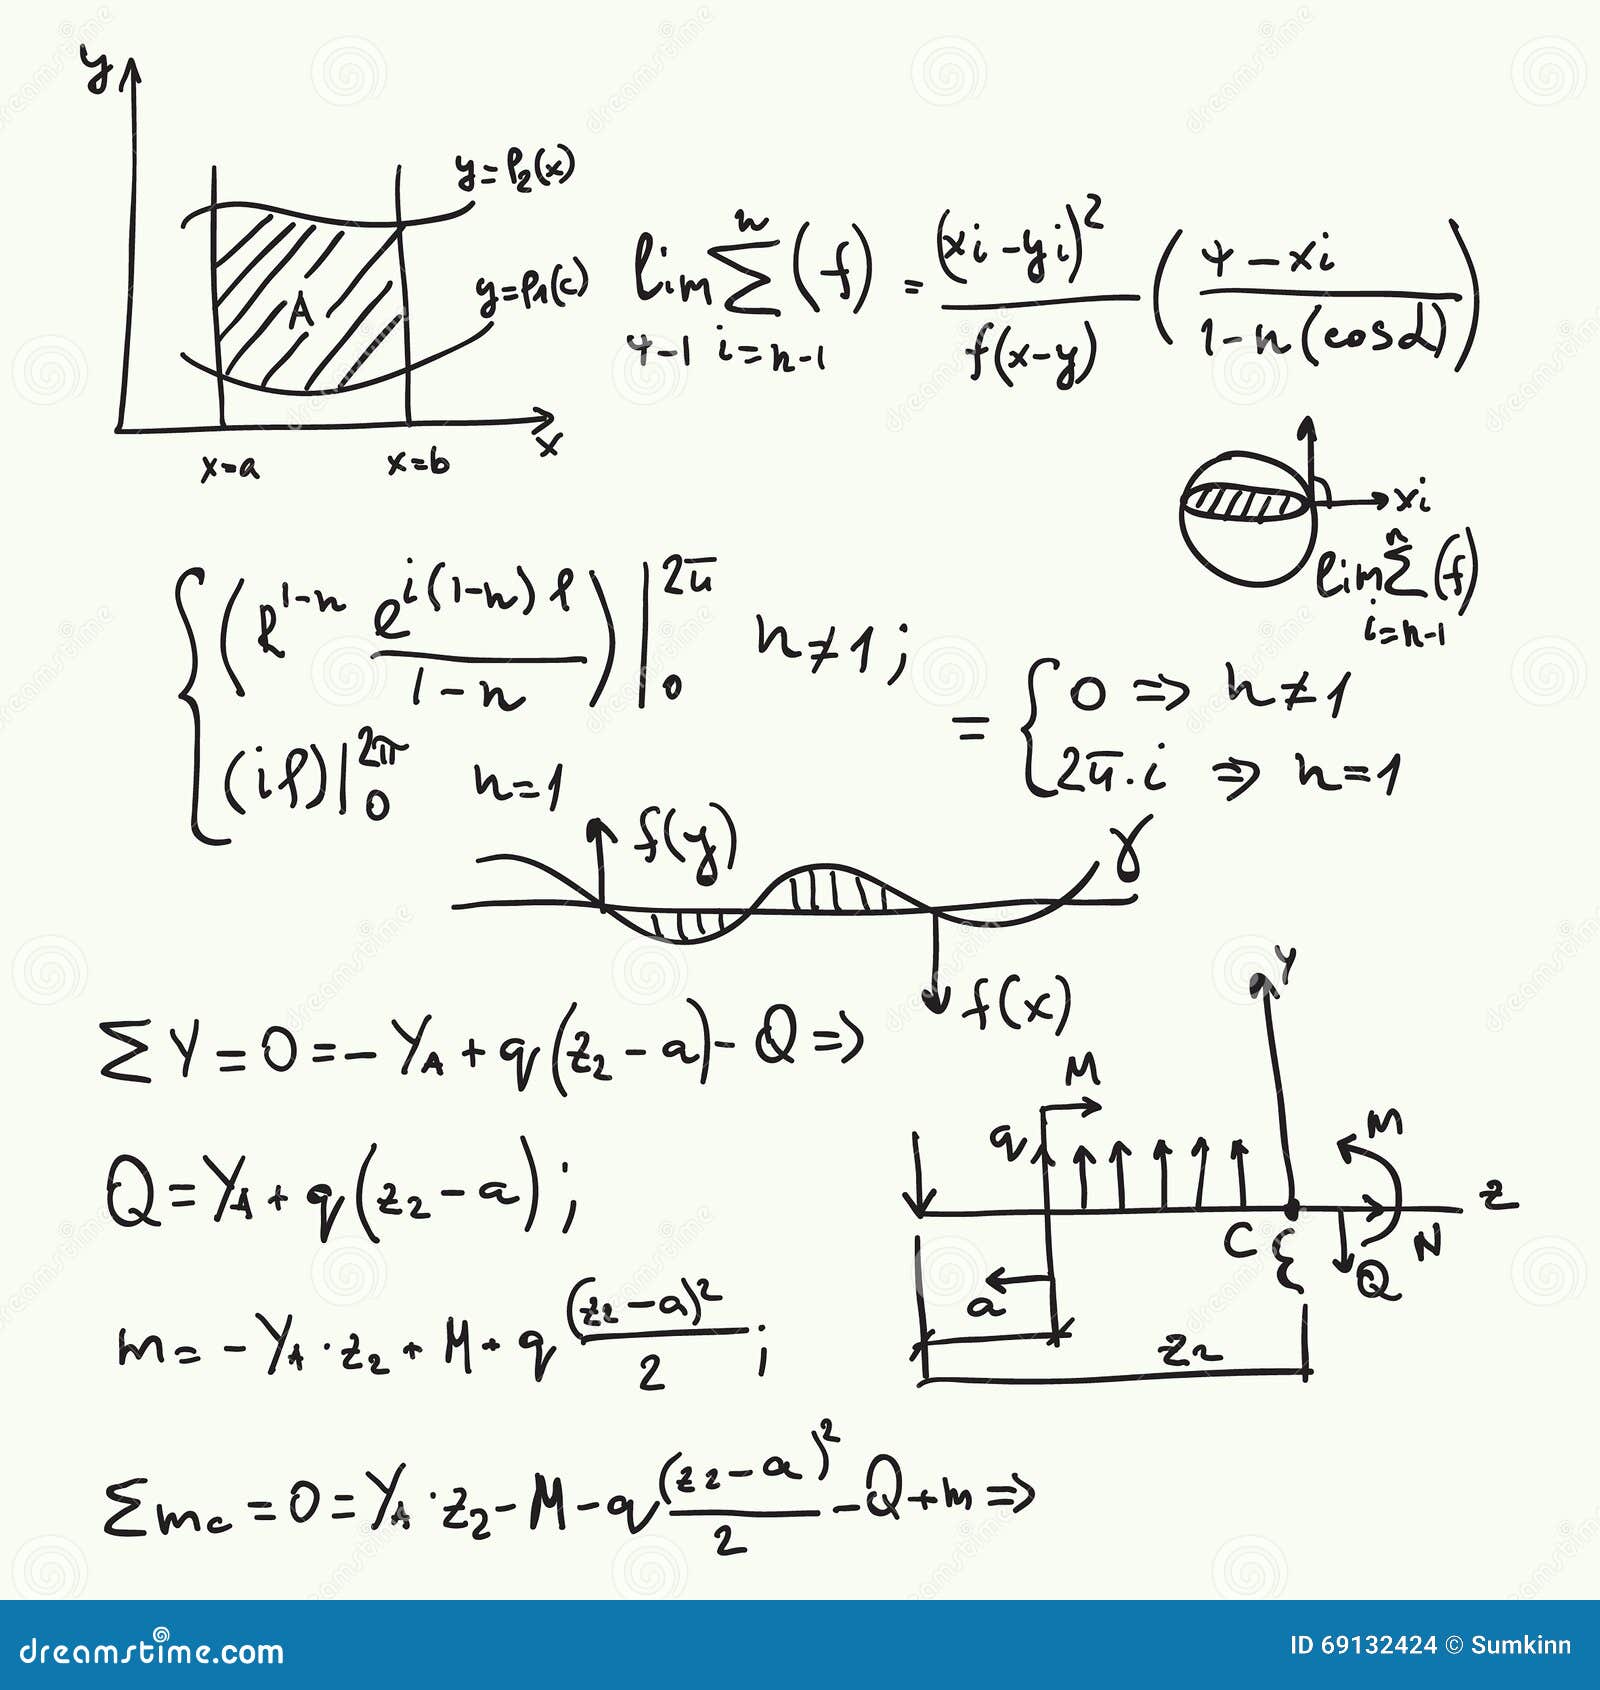 y
y=P₂(x)
y=P₁(c)
A
x
x=a x=b
lim Σ (f) = (xi-yi)² / f(x-y) (4-xi / 1-n(cosα))
4-1 i=n-1
xi
lim Σ (f)
i=n-1
{ (R^(1-n) e^(i(1-n)φ) / 1-n) |₀^2π n≠1;
(iφ)|₀^2π n=1
= { 0 ⇒ n≠1
2π·i ⇒ n=1
f(y)
γ
f(x)
ΣY=0=-Y_A+q(z₂-a)-Q⇒
Q=Y_A+q(z₂-a);
m=-Y_A·z₂+M+q (z₂-a)²/2;
Σm_c=0=Y_A·z₂-M-q (z₂-a)²/2 -Q+m⇒
Y
M
q
M
z
C
N
Q
a
z₂
dreamstime.com
ID 69132424 © Sumkinn